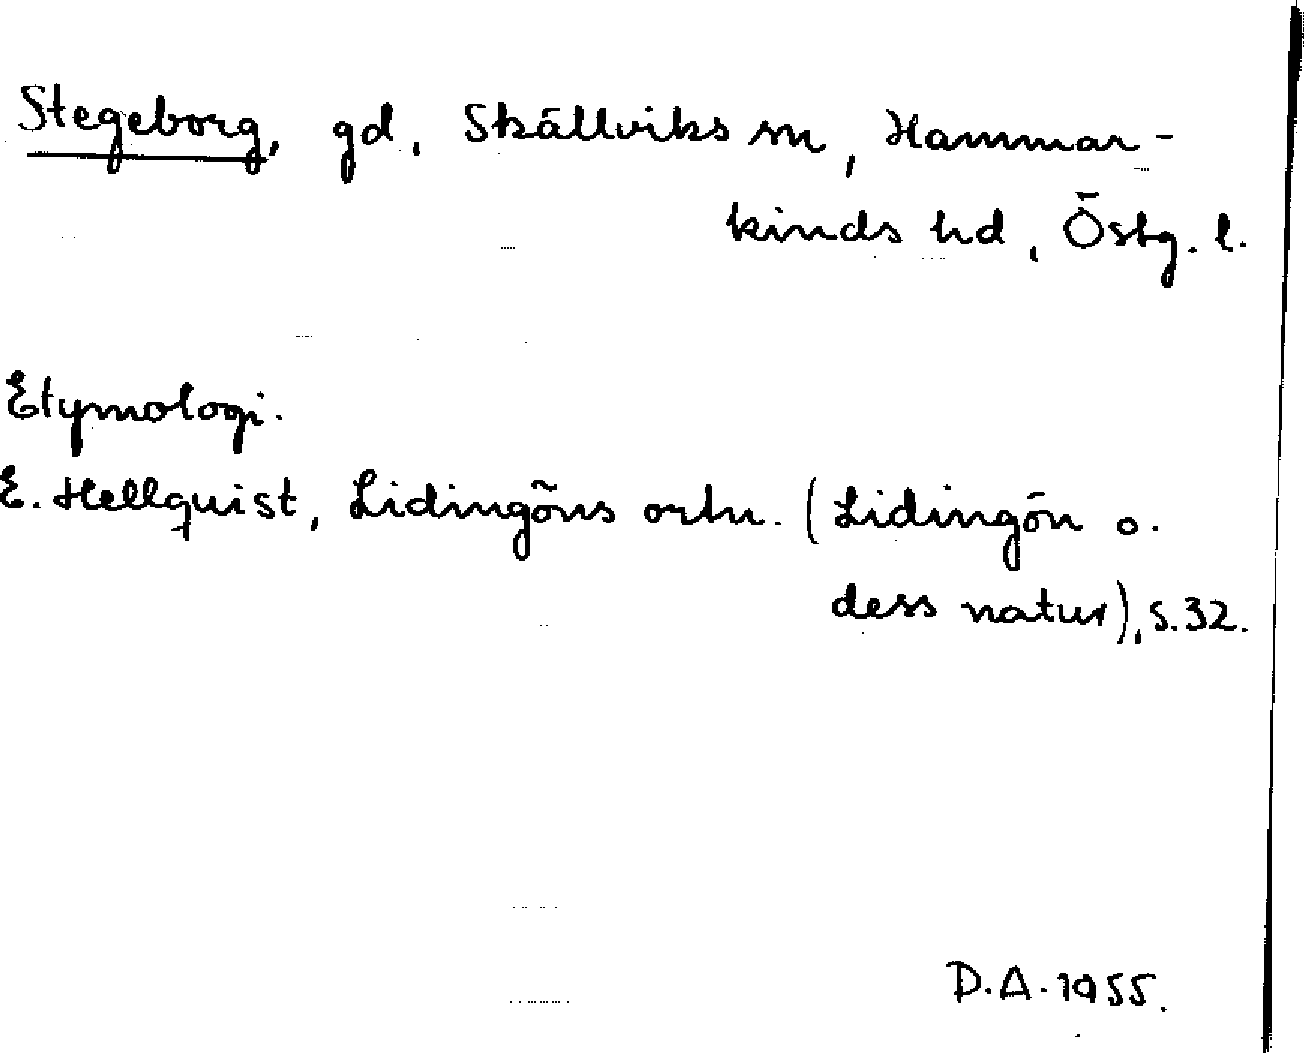 Stegeborg, gd, Skällviks sn, Hammar-
kinds hd, Östg. l.
Etymologi.
E. Hellquist, Lidingöns ortn. (Lidingön o.
dess natur), s. 32.
D.A. 1955.